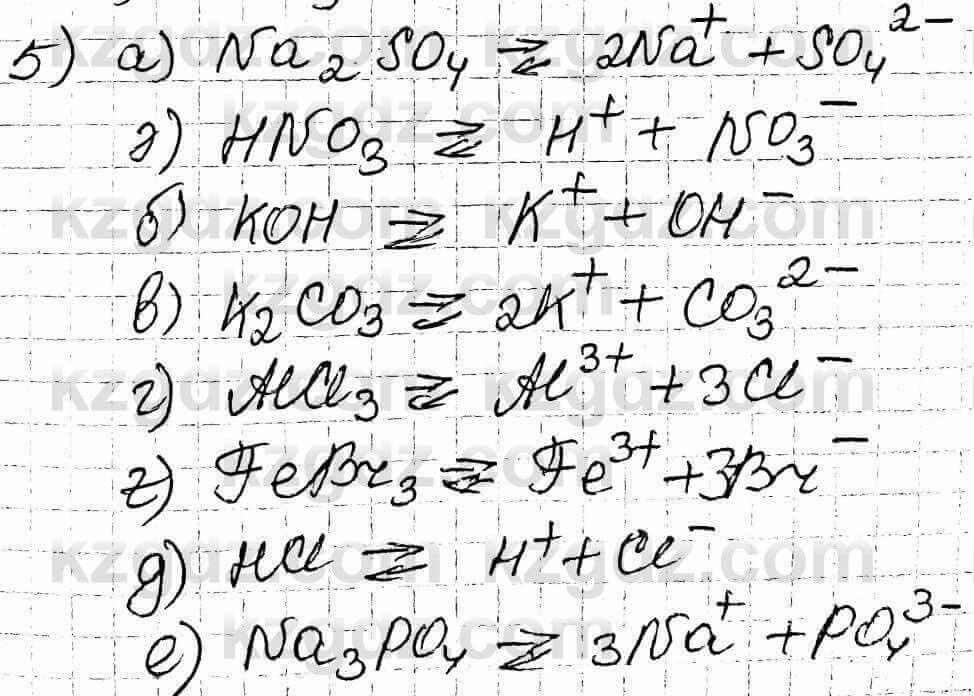 5) а) Na₂SO₄ ⇄ 2Na⁺ + SO₄²⁻
ә) HNO₃ ⇄ H⁺ + NO₃⁻
б) KOH ⇄ K⁺ + OH⁻
в) K₂CO₃ ⇄ 2K⁺ + CO₃²⁻
г) AlCl₃ ⇄ Al³⁺ + 3Cl⁻
г) FeBr₃ ⇄ Fe³⁺ + 3Br⁻
д) HCl ⇄ H⁺ + Cl⁻
е) Na₃PO₄ ⇄ 3Na⁺ + PO₄³⁻